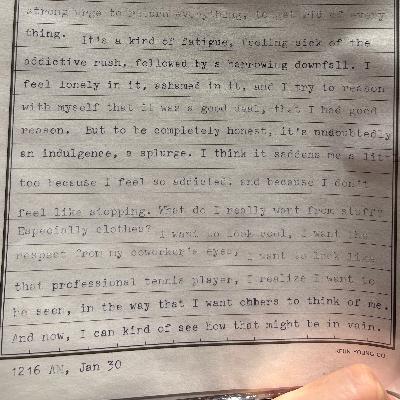 strong urge to return everything, to get rid of every
thing. It's a kind of fatigue, feeling sick of the
addictive rush, followed by a harrowing downfall. I
feel lonely in it, ashamed in it, and I try to reason
with myself that it was a good deal, that I had good
reason. But to be completely honest, it's undoubtedly
an indulgence, a splurge. I think it saddens me a lit-
too because I feel so addicted. and because I don't
feel like stopping. What do I really want from stuff?
Especially clothes? I want to look cool, I want the
respect from my coworker's eyes, I want to look like
that professional tennis player, I realize I want to
be seen, in the way that I want others to think of me.
And now, I can kind of see how that might be in vain.
YOUNG CO
1216 AM, Jan 30